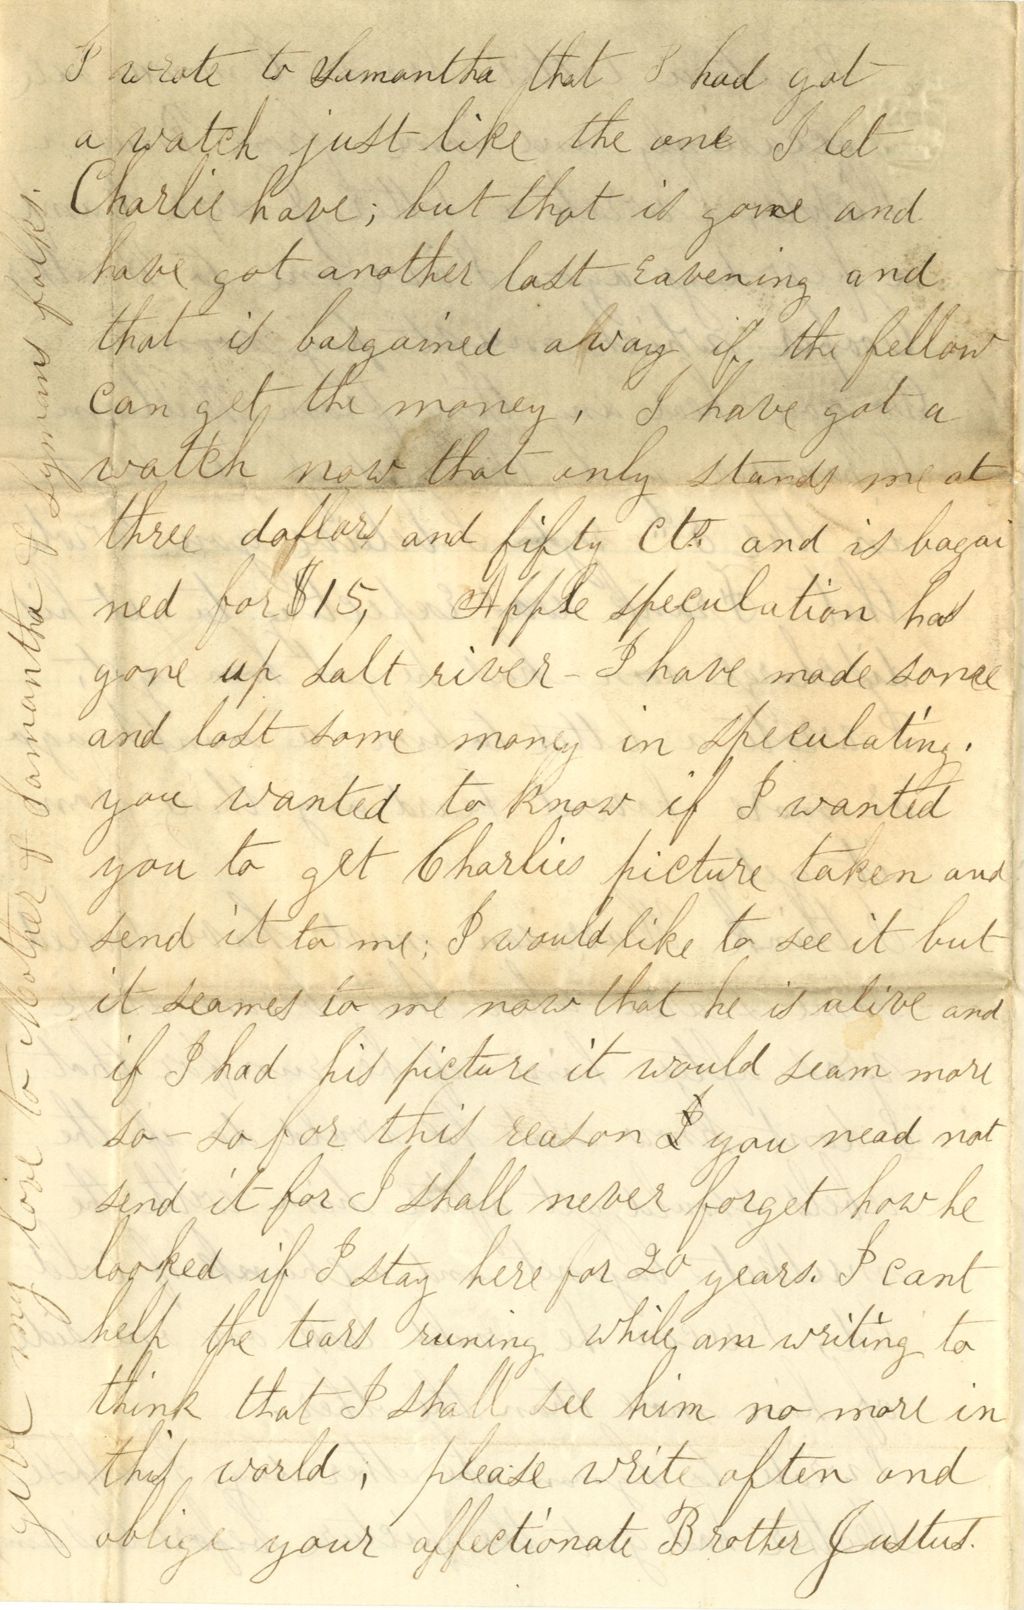 I wrote to Samantha that I had got
a watch just like the one I let
Charlie have; but that is gone and
have got another last eavening and
that is bargained away if the fellow
can get the money. I have got a
watch now that only stands me at
three dollars and fifty cts. and is bagai
ned for $15, Apple speculation has
gone up salt river - I have made some
and lost some money in speculating.
you wanted to know if I wanted
you to get Charlies picture taken and
send it to me; I would like to see it but
it seames to me now that he is alive and
if I had his picture it would seam more
so - so for this reason I you nead not
send it for I shall never forget how he
looked if I stay here for 20 years. I cant
help the tears runing while am writing to
think that I shall see him no more in
this world; please write often and
oblige your affectionate Brother Justus.
give my love to Mother & Samantha & Lymans folks.